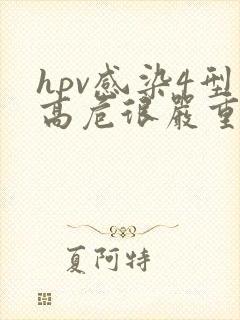 hpv感染4型
高危很严重
夏阿特